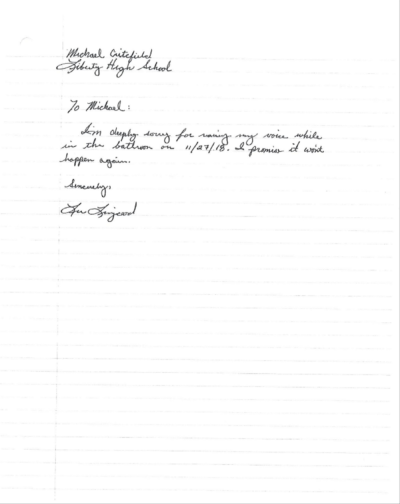 Michael Critefield
Liberty High School
To Michael:
I'm deeply sorry for raising my voice while
in the bathroom on 11/27/18. I promise it wont
happen again.
Sincerely,